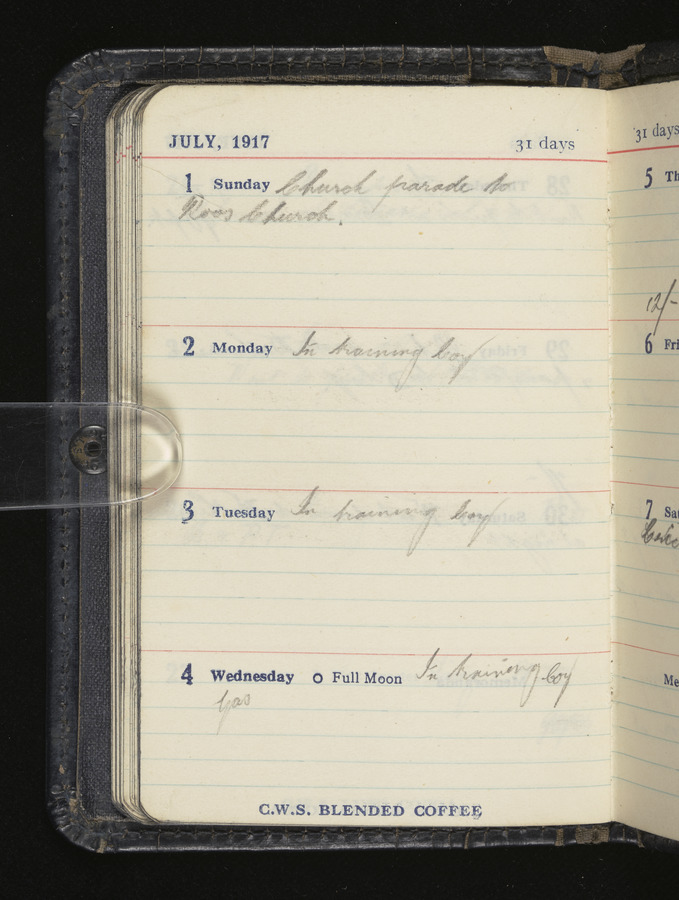 JULY, 1917 31 days
1 Sunday Church parade to
Roos Church.
2 Monday In training coy
3 Tuesday In training coy
4 Wednesday O Full Moon In training coy
Gas
C.W.S. BLENDED COFFEE
31 days
5 Th
12/-
6 Fri
7 Sa
Me